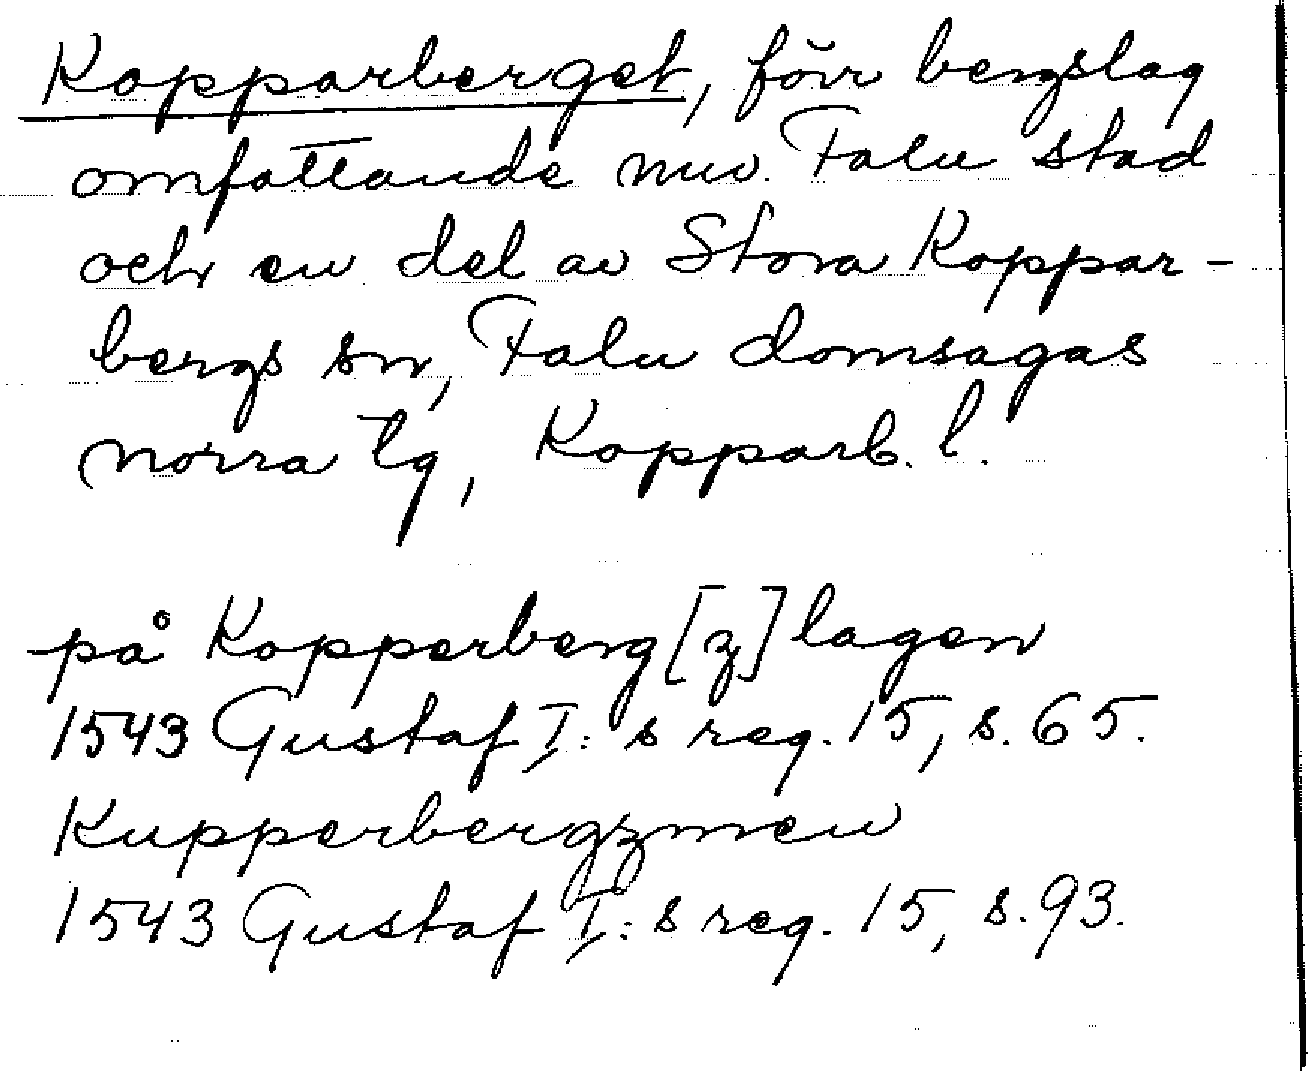 Kopparberget, förr bergslag
omfattande nuv. Falu stad
och en del av Stora Koppar-
bergs sn, Falu domsagas
norra tg, Kopparb. l.
på Kopperberg[z]lagen
1543 Gustaf I:s reg. 15, s. 65.
Kupperbergzmen
1543 Gustaf I:s reg. 15, s. 93.